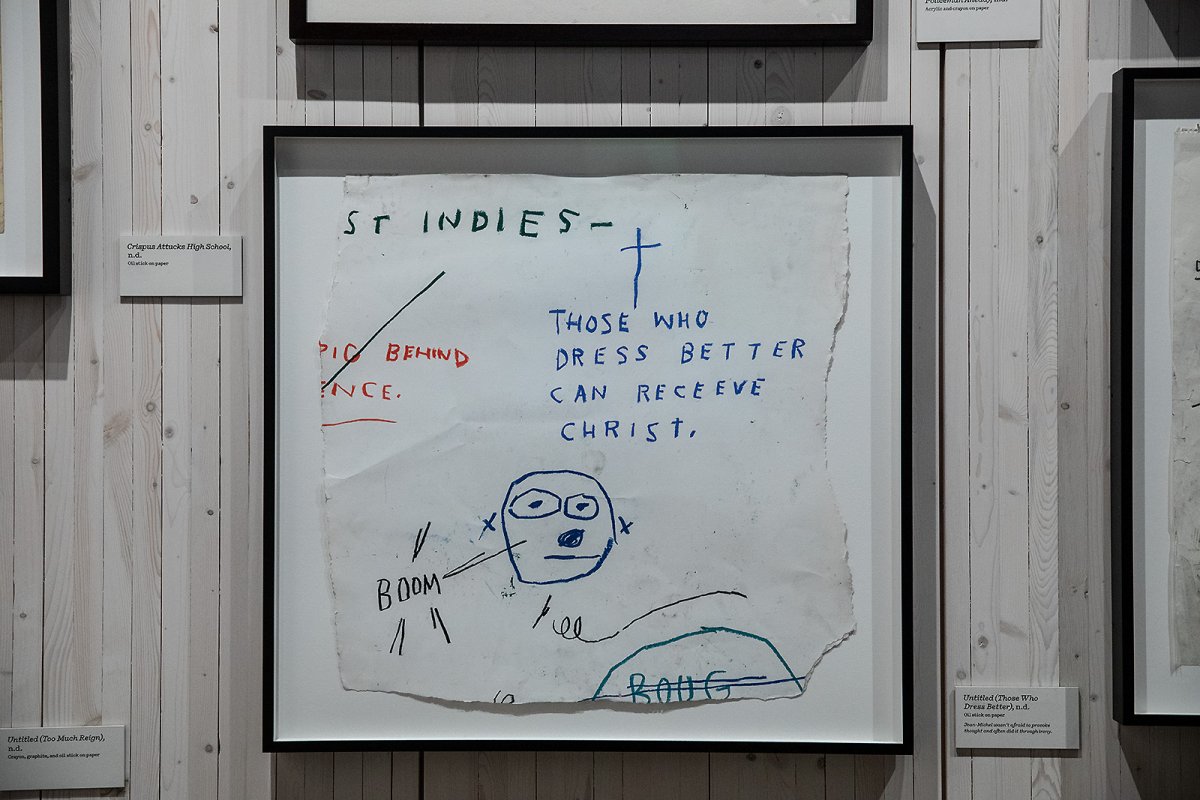 Acrylic and crayon on paper
Crispus Attucks High School,
n.d.
Oil stick on paper
ST INDIES—
THOSE WHO
DRESS BETTER
CAN RECEEVE
CHRIST.
PIC BEHIND
ENCE.
BOOM
Untitled (Too Much Reign),
n.d.
Crayon, graphite, and oil stick on paper
Untitled (Those Who
Dress Better), n.d.
Oil stick on paper
Jean-Michel wasn't afraid to provoke
thought and often did it through irony.